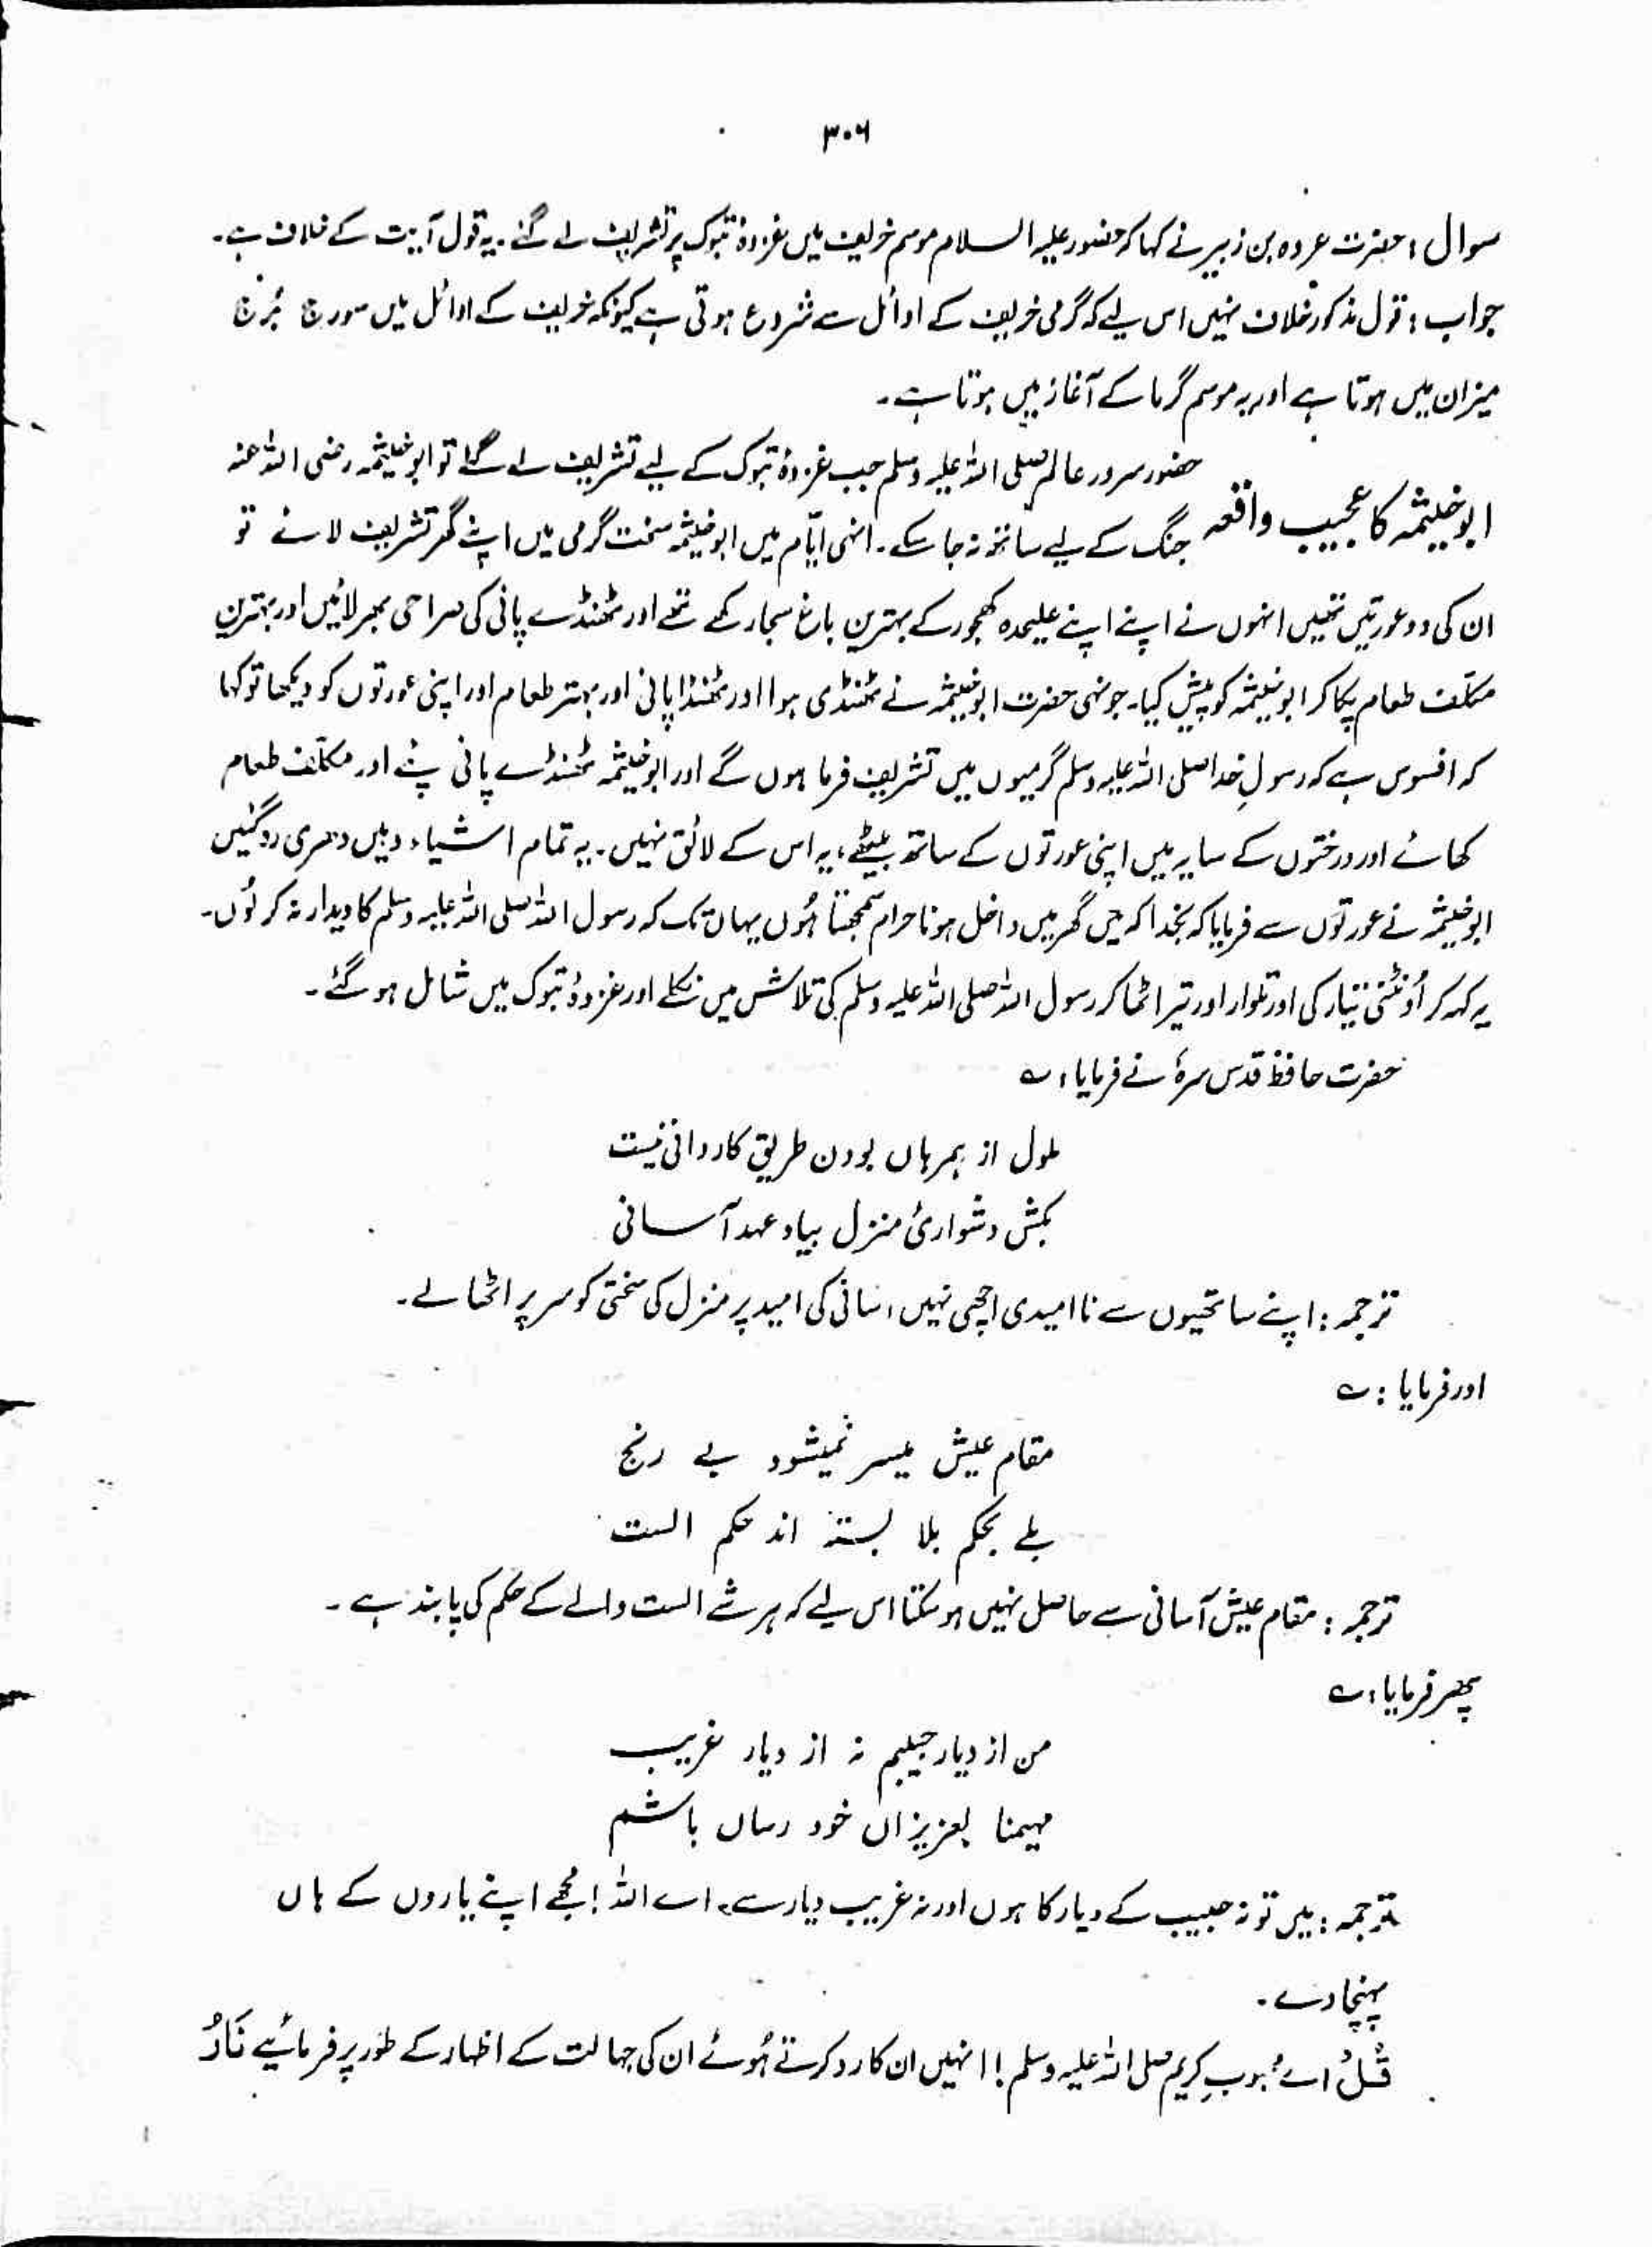 ۳۰۶
سوال : حضرت عروہ بن زبیر نے کہا کہ حضور علیہ السلام موسم خریف میں غزوۂ تبوک پر تشریف لے گئے ۔ یہ قول آیت کے خلاف ہے ۔
جواب : قول مذکور خلاف نہیں اس لیے کہ گرمی خریف کے اوائل سے شروع ہوتی ہے کیونکہ خریف کے اوائل میں سورج بُرج
میزان میں ہوتا ہے اور یہ موسم گرما کے آغاز میں ہوتا ہے ۔
ابوخیثمہ کا عجیب واقعہ
حضور سرور عالم صلی اللہ علیہ وسلم جب غزوۂ تبوک کے لیے تشریف لے گئے تو ابوخیثمہ رضی اللہ عنہ
جنگ کے لیے ساتھ نہ جا سکے ۔ انہی ایّام میں ابوخیثمہ سخت گرمی میں اپنے گھر تشریف لائے تو
ان کی دو عورتیں تھیں انہوں نے اپنے اپنے علیحدہ کھجور کے بہترین باغ سجا رکھے تھے اور ٹھنڈے پانی کی صراحی بھر لائیں اور بہترین
مکلّف طعام پکا کر ابوخیثمہ کو پیش کیا ۔ جونہی حضرت ابوخیثمہ نے ٹھنڈی ہوا اور ٹھنڈا پانی اور بہتر طعام اور اپنی عورتوں کو دیکھا تو کہا
کہ افسوس ہے کہ رسولِ خدا صلی اللہ علیہ وسلم گرمیوں میں تشریف فرما ہوں گے اور ابوخیثمہ ٹھنڈے پانی پئے اور مکلّف طعام
کھائے اور درختوں کے سایہ میں اپنی عورتوں کے ساتھ بیٹھے ، یہ اس کے لائق نہیں ۔ یہ تمام اشیاء وہیں دھری رہ گئیں
ابوخیثمہ نے عورتوں سے فرمایا کہ بخدا کہ میں گھر میں داخل ہونا حرام سمجھتا ہُوں یہاں تک کہ رسول اللہ صلی اللہ علیہ وسلم کا دیدار نہ کر لُوں ۔
یہ کہہ کر اُونٹنی تیار کی اور تلوار اور تیر اٹھا کر رسول اللہ صلی اللہ علیہ وسلم کی تلاش میں نکلے اور غزوۂ تبوک میں شامل ہو گئے ۔
حضرت حافظ قدس سرۂ نے فرمایا : ؎
ملول از ہمرہاں بودن طریق کاردانی نیست
بکش دشواریٔ منزل بیاد عہد آسانی
ترجمہ : اپنے ساتھیوں سے ناامیدی اچھی نہیں ، اسانی کی امید پر منزل کی سختی کو سر پر اٹھا لے ۔
اور فرمایا : ؎
مقام عیش میسر نمیشود بے رنج
بلے بحکم بلا بستہ اند حکم الست
ترجمہ : مقام عیش آسانی سے حاصل نہیں ہو سکتا اس لیے کہ ہر شے الست والے کے حکم کی پابند ہے ۔
پھر فرمایا : ؎
من از دیار حبیبم نہ از دیار غریب
مہیمنا بعزیزاں خود رساں باشم
ترجمہ : میں تو نہ حبیب کے دیار کا ہوں اور نہ غریب دیار سے ، اے اللہ ! مجھے اپنے یاروں کے ہاں
پہنچا دے ۔
قُلْ اے محبوبِ کریم صلی اللہ علیہ وسلم ! انہیں ان کا رد کرتے ہُوئے ان کی جہالت کے اظہار کے طور پر فرمائیے نَارُ